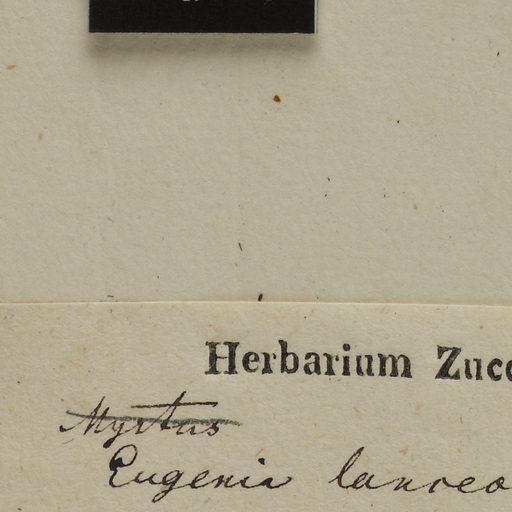 Herbarium Zucc
Myrtus
Eugenia lanceo